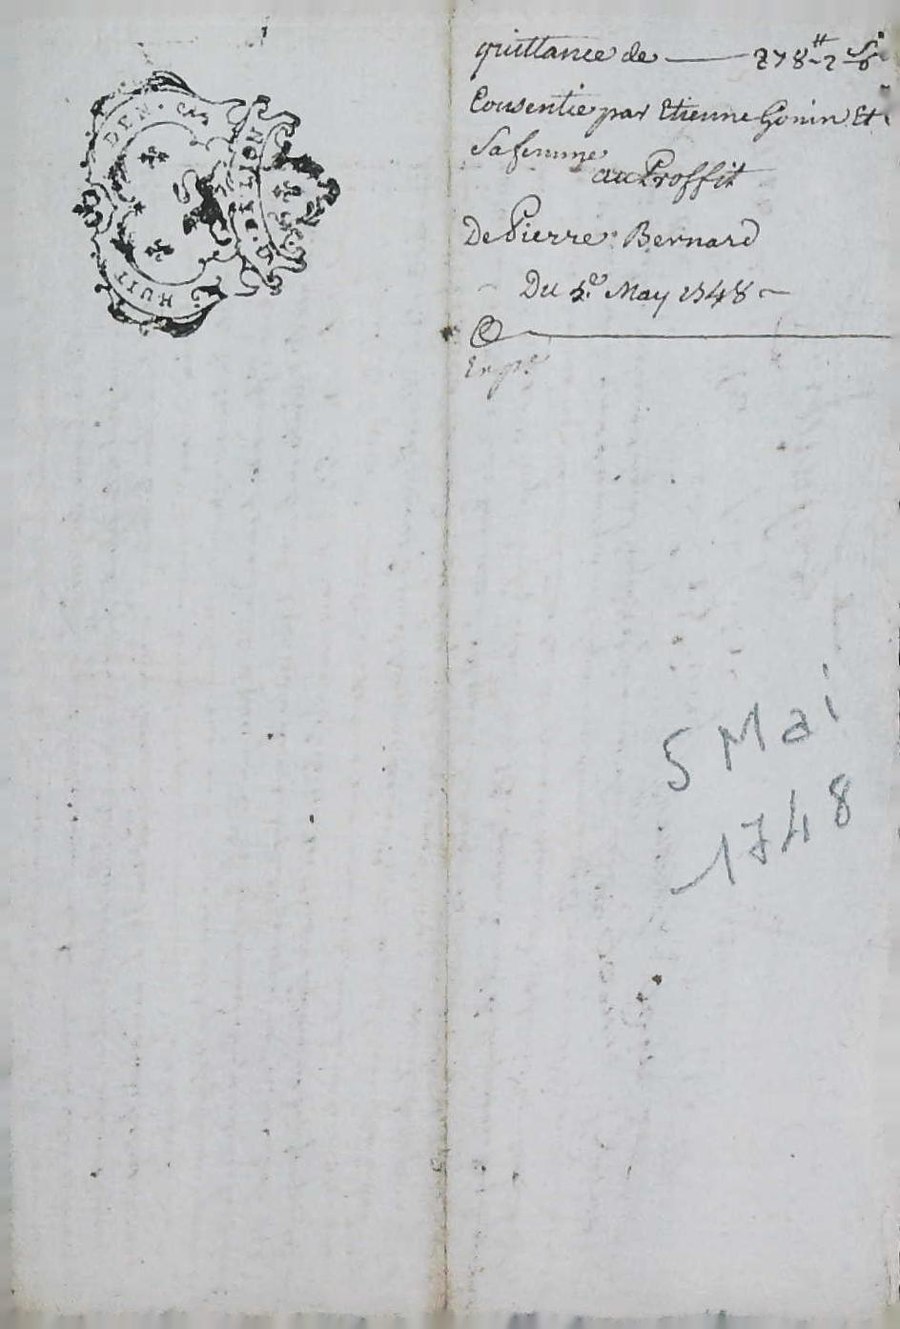 HUIT DEN.
quittance de 278# 2 s
Consentie par Etienne Gonin Et
Sa femme
au Proffit
De Pierre Bernard
Du 5e May 1748
5 Mai
1748